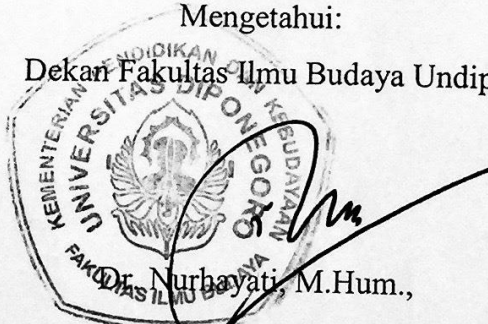 Mengetahui:
Dekan Fakultas Ilmu Budaya Undip
KEMENTERIAN PENDIDIKAN DAN KEBUDAYAAN
UNIVERSITAS DIPONEGORO
FAKULTAS ILMU BUDAYA
Dr. Nurhayati, M.Hum.,